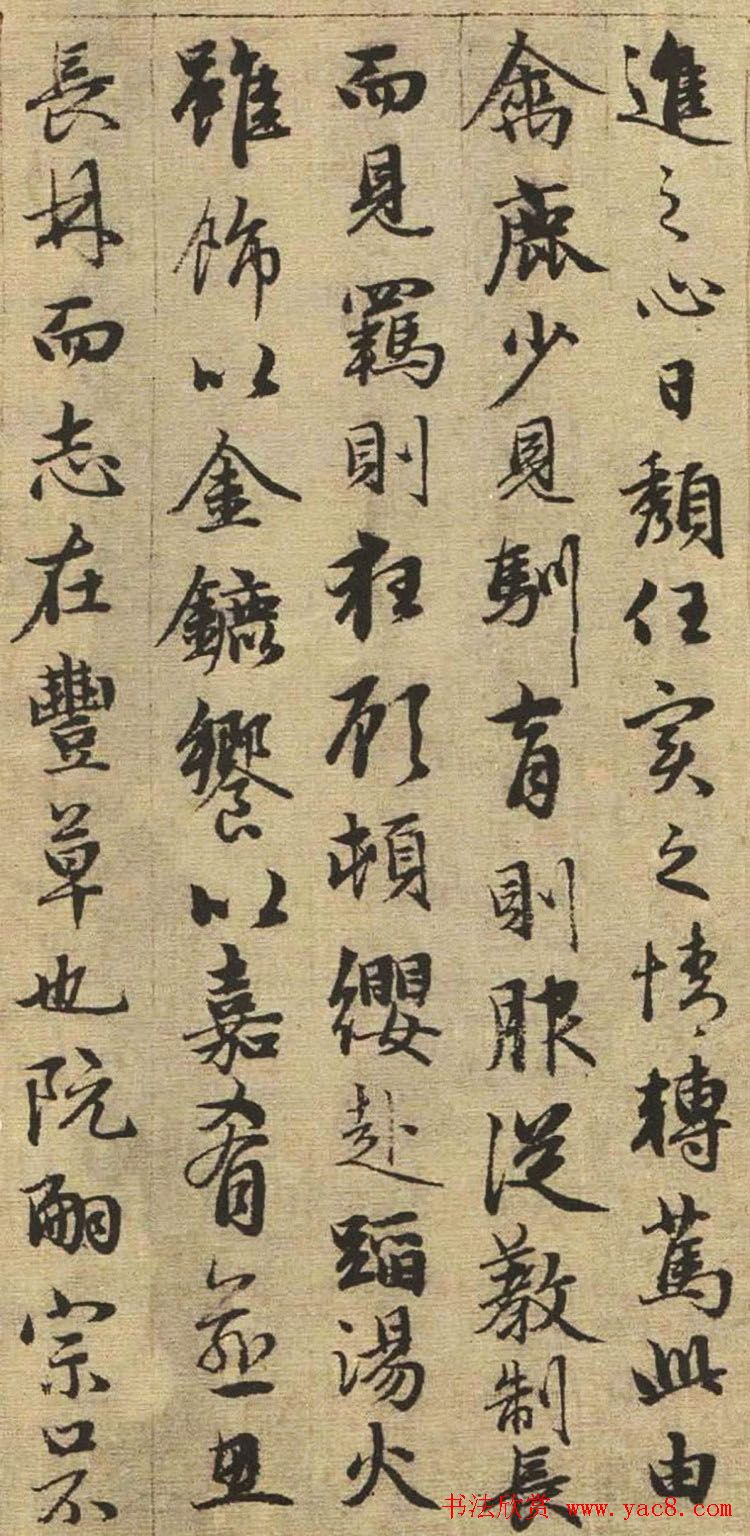 進之心日頹任實之情轉篤此由
禽鹿少見馴育則服從教制長
而見羈則狂顧頓纓赴蹈湯火
雖飾以金鑣饗以嘉肴愈思
長林而志在豐草也阮嗣宗口不
书法欣赏 www.yac8.com